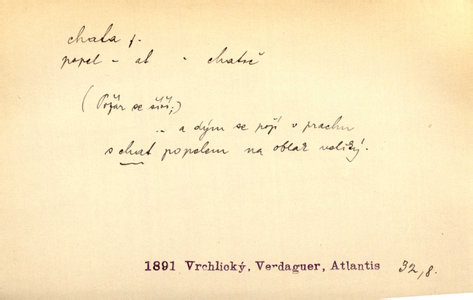 chata f.
popel – at - chatrč
(Požár se šíří;)
.. a dým se pojí v prachu
s chat popelem na oblak veliký.
1891 Vrchlický, Verdaguer, Atlantis 32,8.